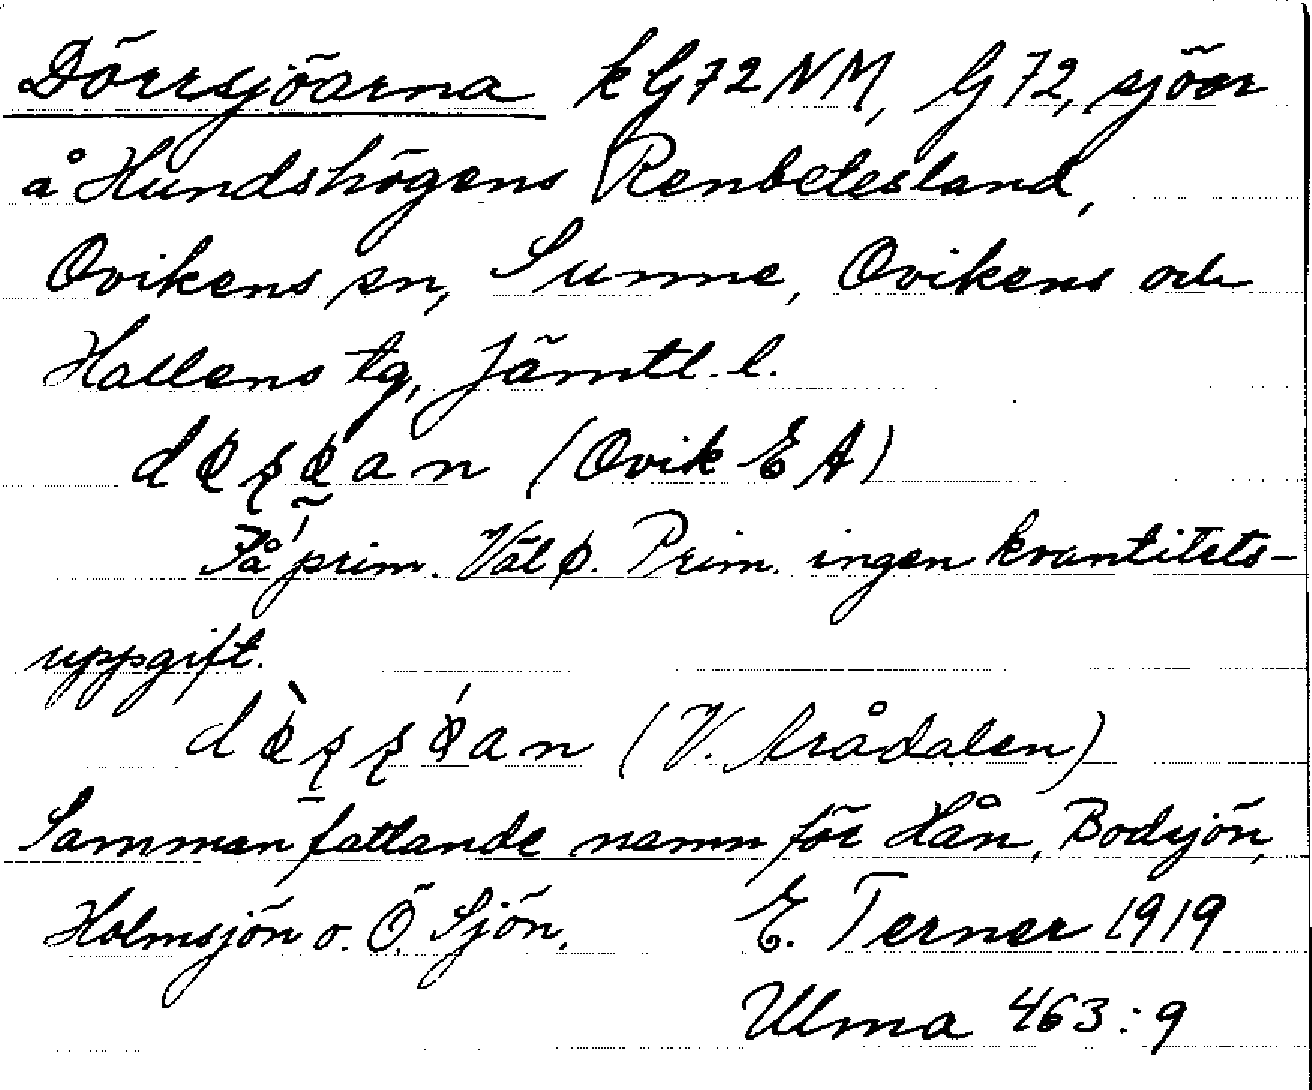 Dörrsjöarna k G72 NM, G 72, sjöar
å Hundshögens Renbetesland,
Ovikens sn, Sunne, Ovikens och
Hallens tg, Jämtl. l.
(Ovik E A)
Få prim. Väl ø. Prim. ingen kvantitets-
uppgift.
(V. Arådalen)
Sammanfattande namn för Hån, Bodsjön,
Holmsjön o. Ö. Sjön.
E. Terner 1919
Ulma 463:9